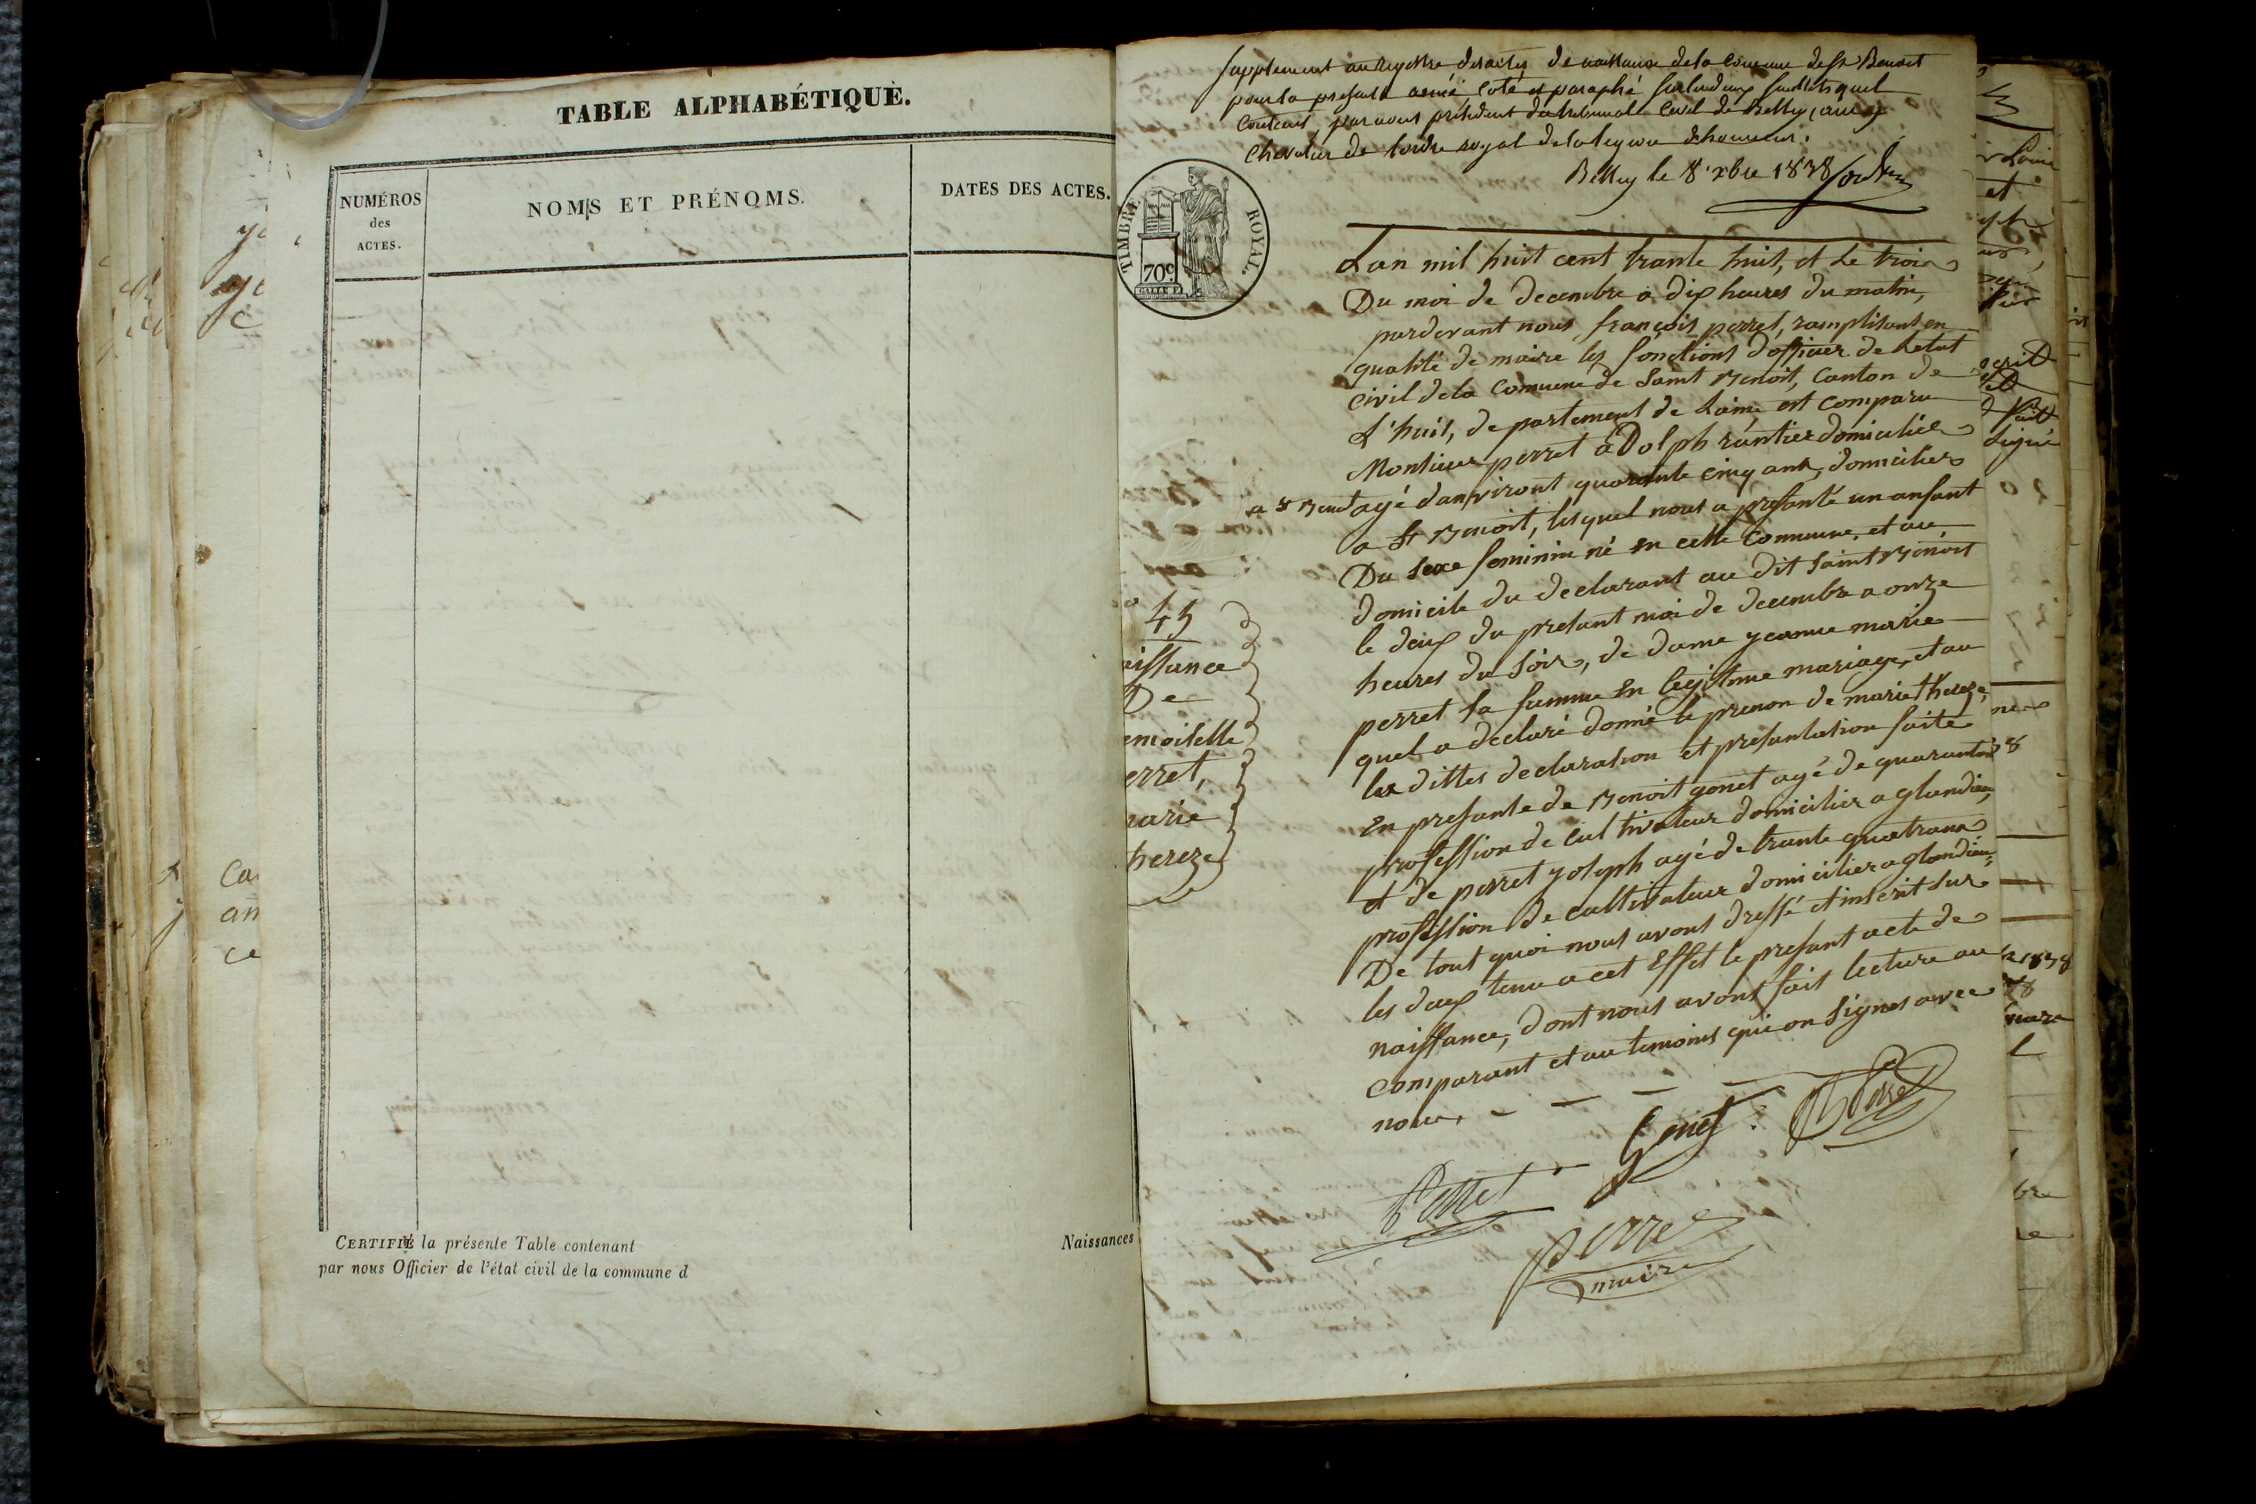 TABLE ALPHABÉTIQUE.
NUMÉROS
des
ACTES.
NOMS ET PRÉNOMS.
DATES DES ACTES.
CERTIFIÉ la présente Table contenant
Naissances
par nous Officier de l'état civil de la commune d
Supplement au registre des actes de naissance de la commune de St Benoit
pour la presente année coté et paraphé
contenus, par nous président du tribunal civil de Belley,
chevalier de lordre royal de la legion dhonneur.
Belley le 8 xbre 1838
TIMBRE ROYAL.
70c
Lan mil huit cent trante huit, et le trois
Du moi de decembre a dix heures du matin,
pardevant nous françois perret, ramplisant en
qualité de maire les fonctions dofficier de letat
civil de la Comune de Saint Benoit, Canton de
L'huis, departement de Laine, est comparu
Monsieur perret aDolph rantier domicilié
a St Benoit agé danviront quarante cinq ans, domicilier
a St Benoit, lesquel nous a presanté un anfant
Du sexe feminin né en cette Commune, et au
domicile du declarant au dit Saint Benoit
le deux du presant moi de decembre a onze
heures du soir, de dame jeanne marie
perret sa femme en legitime mariage, et au
quel a declaré donné le prenon de marie thereze,
les dittes declaration et presantation faite
En presante de Benoit gonet agé de quarante
profession de cultivateur domicilier a glandieu,
et de perret joseph agé de trante quatrans
profession de cultivateur domicilier a glandieu,
De tout quoi nous avons dressé et inscrit sur
les deux tenu a cet Effet le presant acte de
naissance, dont nous avons fait lecture au
comparant et au temoins qui on signes avec
nous,
45
aissance
De
emoiselle
erret,
marie
thereze
Gonet
Perret
perret
maire